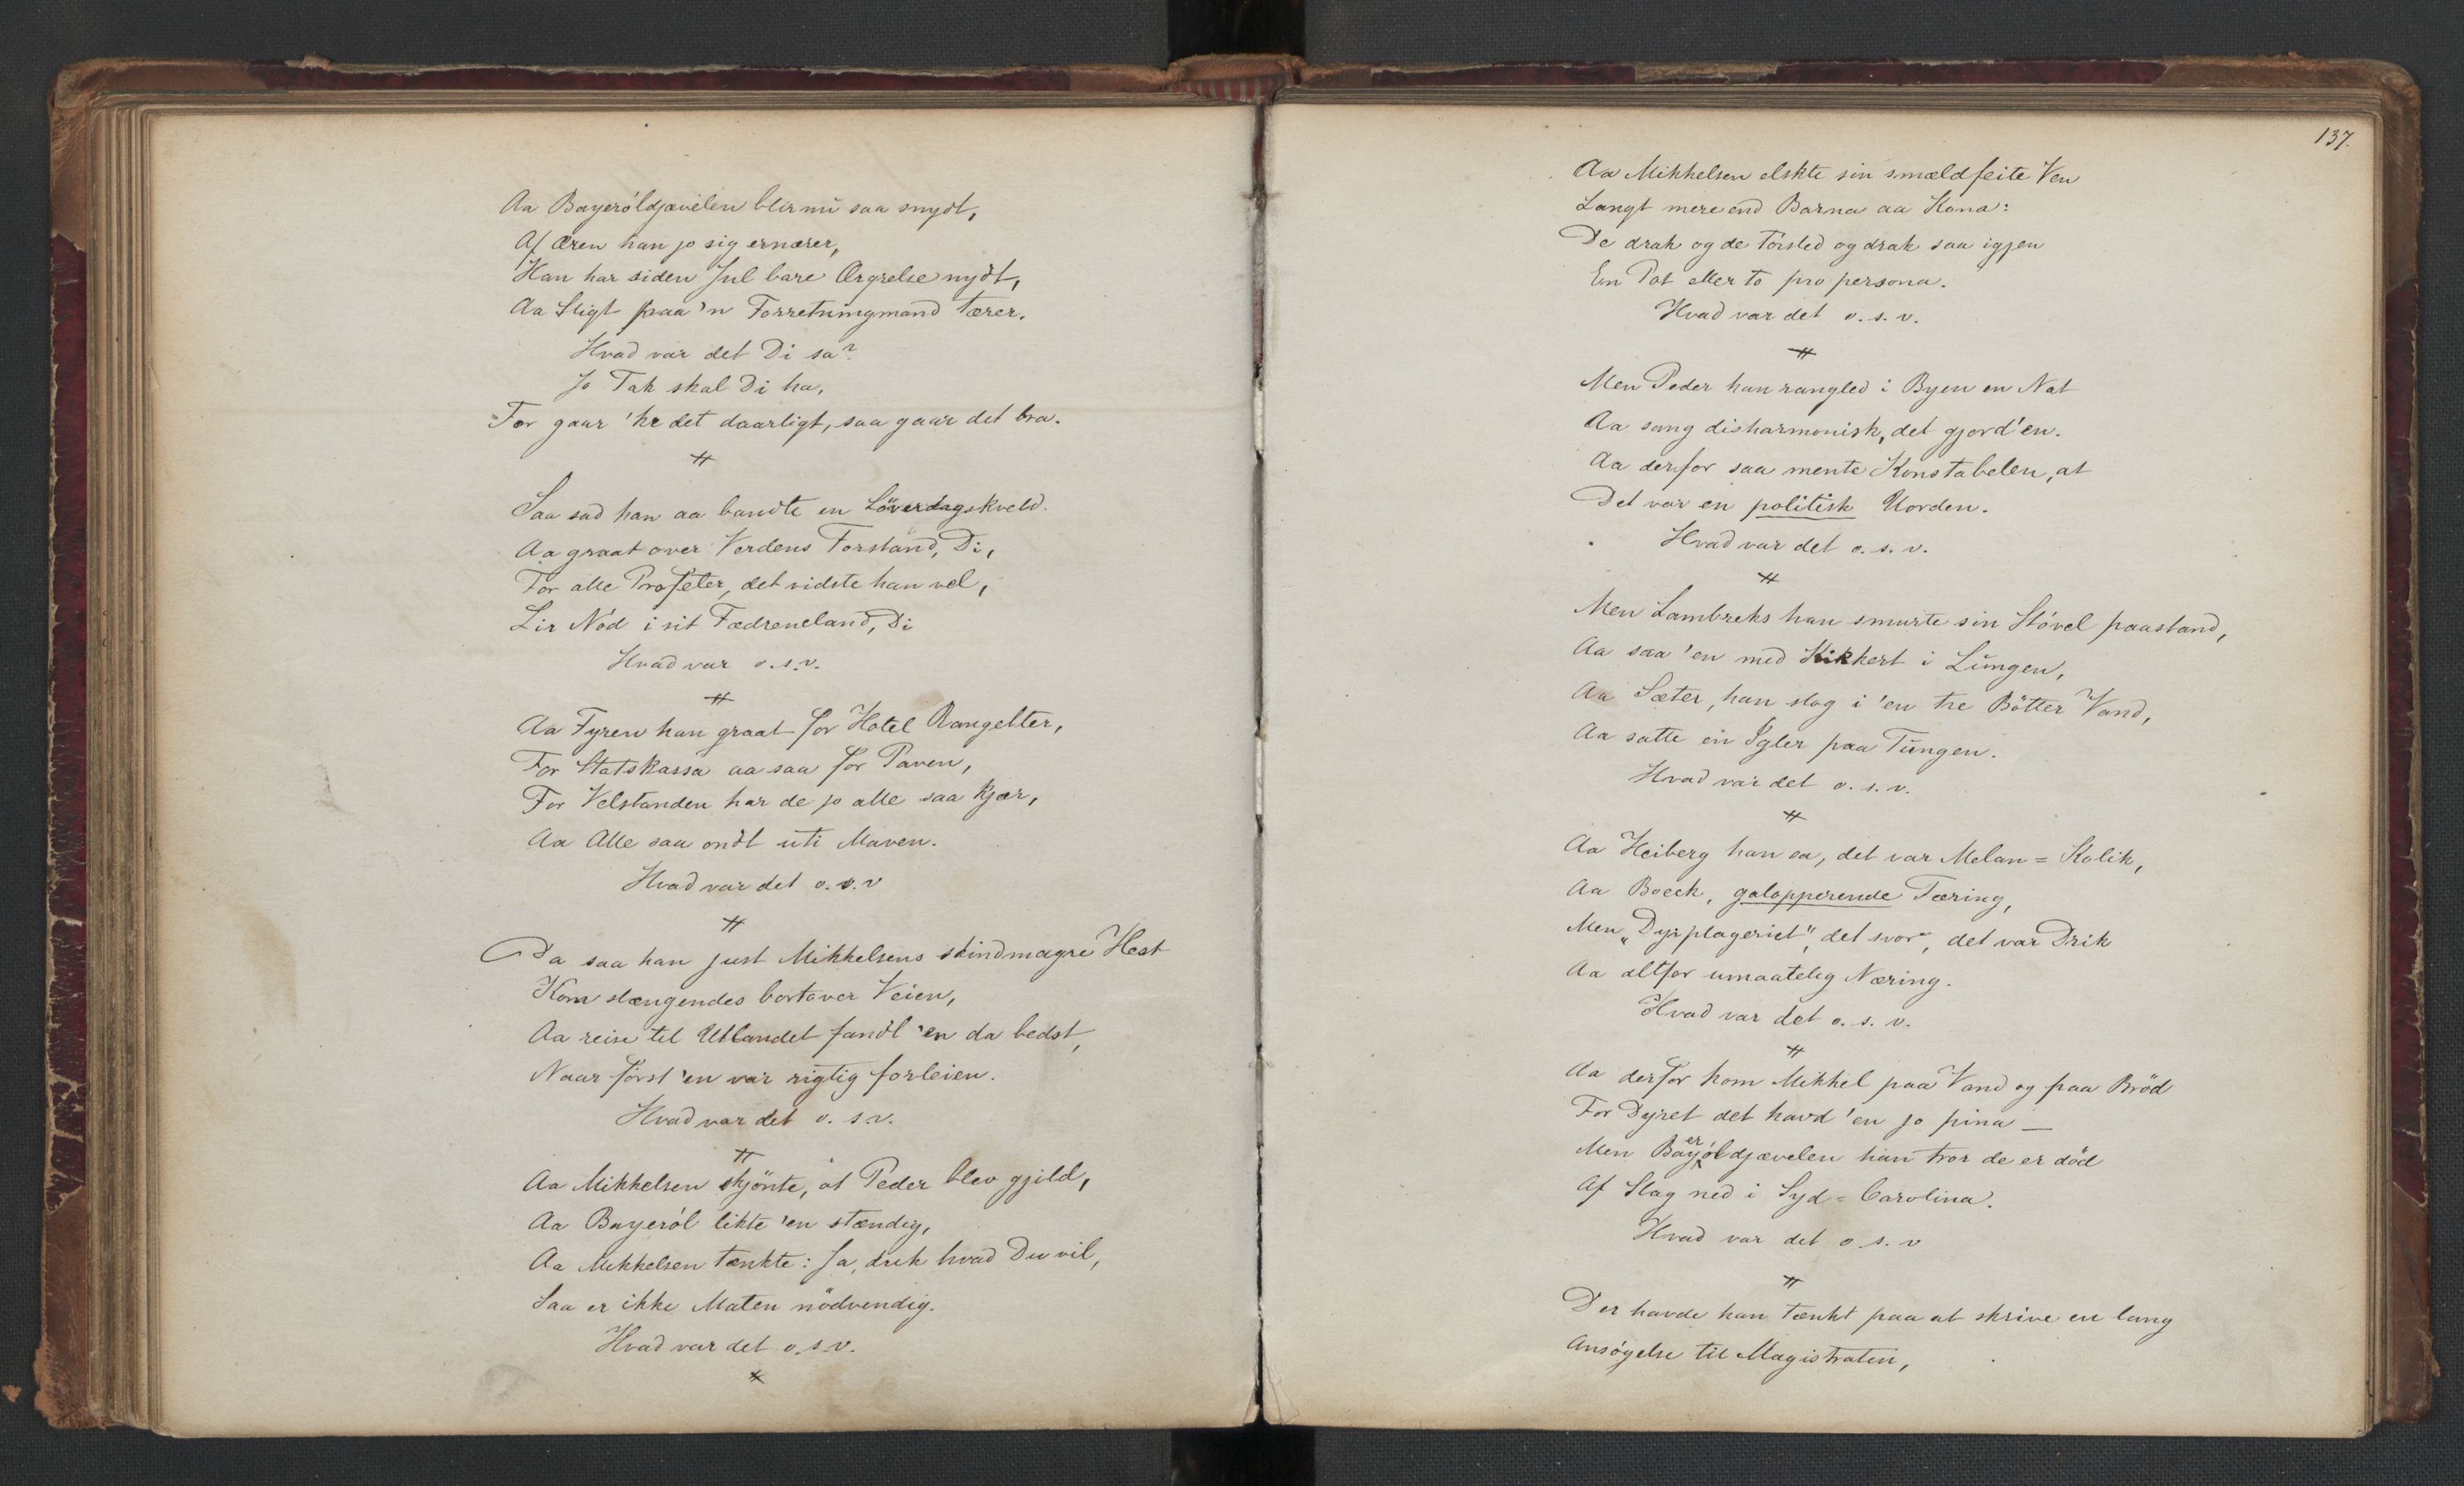 Aa Bayeröldjævelen blir nu saa snydt,
Af Æren han jo sig ernærer,
Han har siden Jul bare Ærgrelse nydt,
Aa Sligt paa 'n Forretningmand tærer.
Hvad var det Di sa?
Jo Tak skal Di ha,
For gaar 'ke det daarligt, saa gaar det bra.
Saa sad han aa bandte en Löverdagskveld.
Aa graat over Verdens Forstand, Di,
For alle Profeter, det vidste han vel,
Lir Nöd i sit Fædreneland, Di
Hvad var o.s.v.
Aa Fyren han graat for Hotel Rangelter,
For Statskassa aa saa for Paven,
For Velstanden har de jo alle saa kjær,
Aa Alle saa ondt uti Maven.
Hvad var det o.s.v
Da saa han just Mikkelsens skindmagre Hest
Kom slængendes bortover Veien,
Aa reise til Utlandet fandt 'en da bedst,
Naar först 'en var rigtig forleien.
Hvad var det o. s.v.
Aa Mikkelsen skjönte, at Peder blev gjild,
Aa Bayeröl likte 'en stændig,
Aa Mikkelsen tænkte: Ja, drik hvad Du vil,
Saa er ikke Maten nödvendig.
Hvad var det o.s.v.
137.
Aa Mikkelsen elskte sin smældfeite Ven
Langt mere end Barna aa Kona:
De drak og de törsted og drak saa igjen
En Pot eller to pro persona.
Hvad var det o.s.v.
Men Peder han rangled i Byen en Nat
Aa sang disharmonisk, det gjord'en.
Aa derfor saa mente Konstabelen, at
Det var en politisk Uorden.
Hvad var det o.s.v.
Men Lambreks han smurte sin Stövel paastand,
Aa saa 'en med Kikkert i Lungen,
Aa Sæter, han slog i 'en tre Bötter Vand,
Aa satte en Igler paa Tungen.
Hvad var det o.s.v.
Aa Heiberg han sa, det var Melan=Kolik,
Aa Boeck, galopperende Tæring,
Men „Dyrplageriet", det svor, det var Drik
Aa altfor umaatelig Næring.
Hvad var det o.s.v.
Aa derfor kom Mikkel paa Vand og paa Bröd
For Dyret det havd 'en jo pina —
Men Bayeröldjævelen han tror de er död
Af Slag ned i Syd=Carolina.
Hvad var det o.s.v
Der havde han tænkt paa at skrive en lang
Ansögelse til Magistraten,